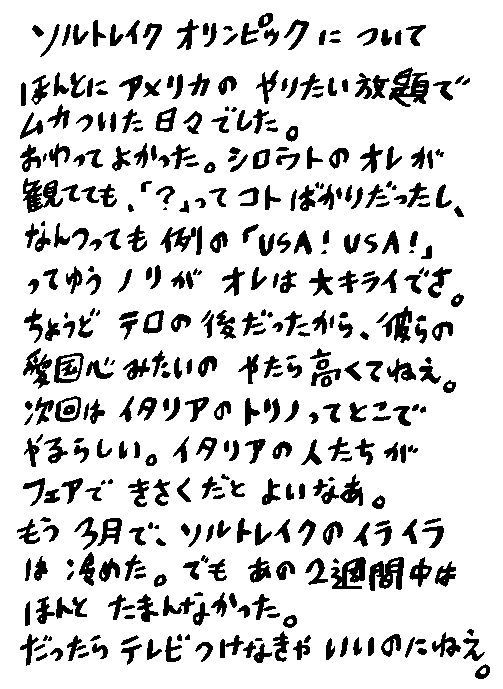 ソルトレイク オリンピックに ついて
ほんとに アメリカの やりたい放題で
ムカついた 日々でした。
おわってよかった。シロウトの オレが
観てても、「?」って コト ばかりだったし、
なんつっても 例の「USA! USA!」
ってゆう ノリが オレは 大キライでさ。
ちょうど テロの後だったから、彼らの
愛国心みたいの やたら高くてねえ。
次回は イタリアの トリノってとこで
やるらしい。イタリアの人たちが
フェアで きさくだと よいなあ。
もう 3月で、ソルトレイクのイライラ
は 冷めた。でも あの2週間中は
ほんと たまんなかった。
だったら テレビつけなきゃ いいのにねえ。